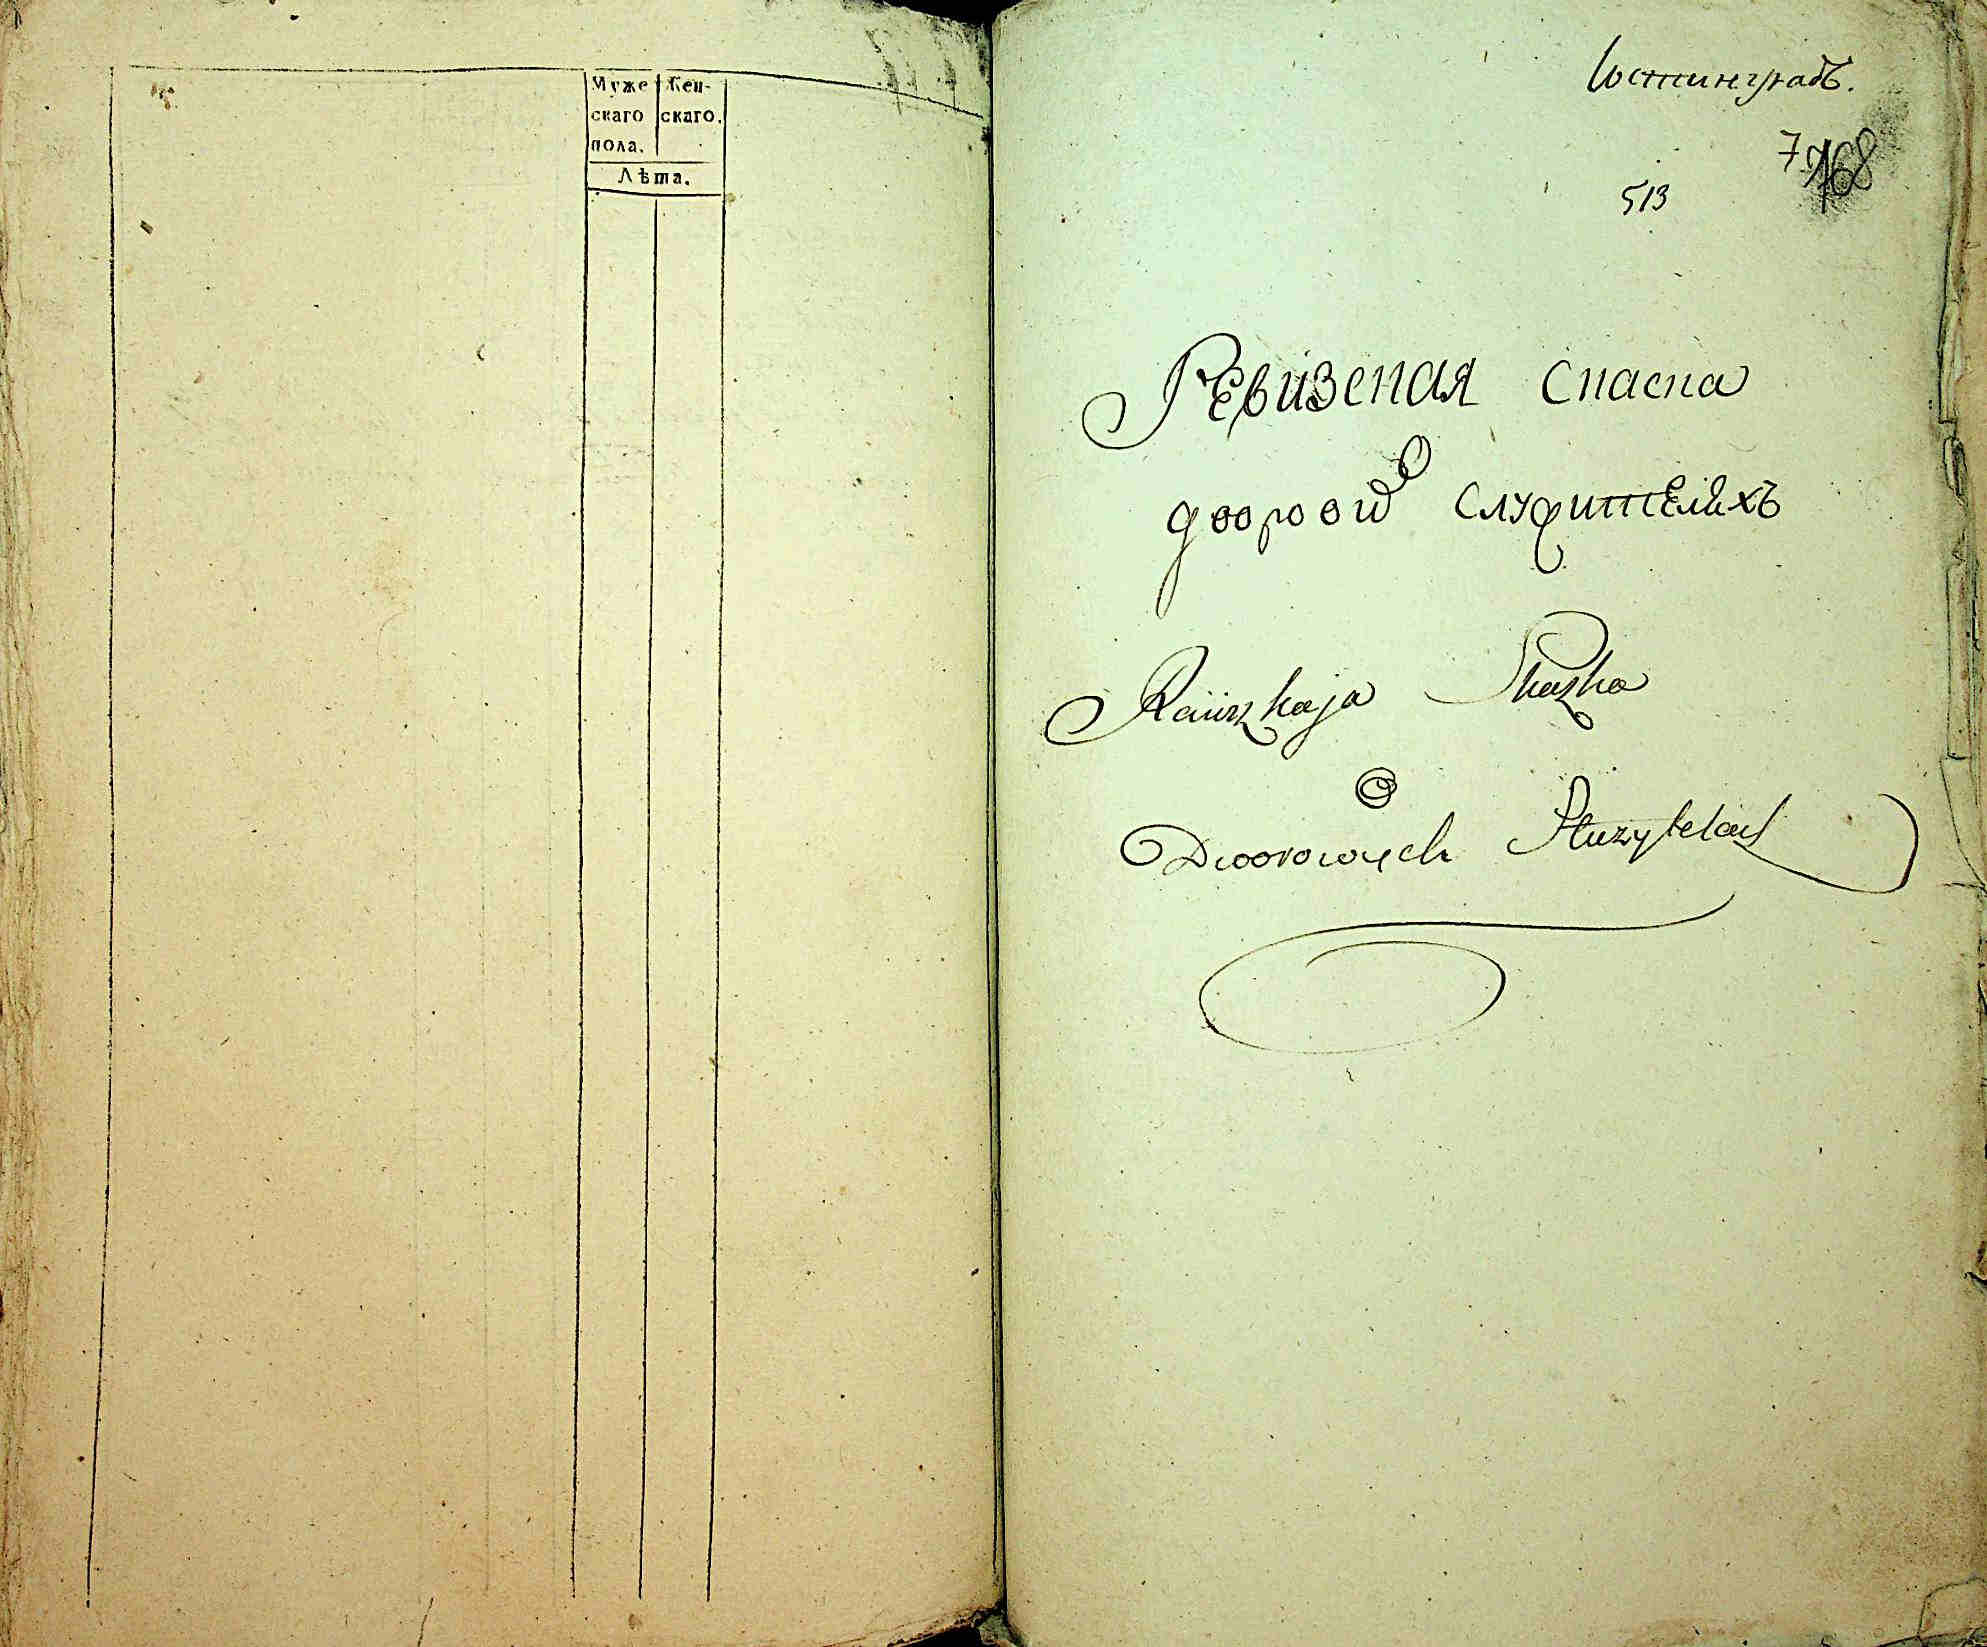 Муже
скаго
пола.
Жен-
скаго.
Лѣта.
Юстинградъ.
513
Ревизспая Спаспа
о
дворовы служителяхъ
Rewizkaja Skazka
O
Dworowych Słuzytelach